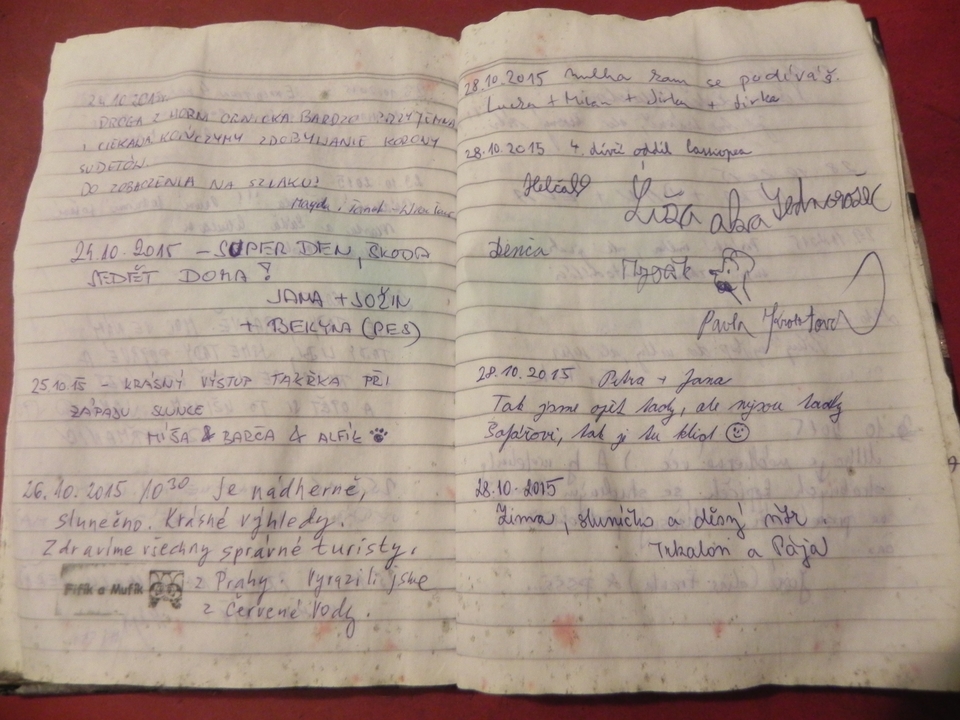 24.10.2015r.
DROGA Z HORNA ORLICKA BARDZO PRZYJEMNA
I CIEKAWA KOŃCZYMY ZDOBYWANIE KORONY
SUDETÓW.
DO ZOBACZENIA NA SZLAKU!
Magda,
24.10.2015 – SUPER DEN, ŠKODA
SEDĚT DOMA!
JANA + JOŽIN
+ BEKYNA (PES)
25.10.15 – KRÁSNÝ VÝSTUP TAKŘKA PŘI
ZÁPADU SLUNCE
MÍŠA & BARČA & ALFÍK
26.10.2015 10 30 Je nádherně,
slunečno. Krásné výhledy.
Zdravíme všechny správné turisty.
Fifík a Mufík z Prahy. Vyrazili jsme
z Červené Vody.
28.10.2015 mlha kam se podíváš.
Lucka + Milan + Jirka + Jirka
28.10.2015 4. dívčí oddíl
Helča
Líza aka Jednorožec
Denča
Pavla
28.10.2015 Petra + Jana
Tak jsme opět tady, ale nejsou tady
Šafářovi, tak je tu klid
28.10.2015
Zima, sluníčko a děsný vítr
a Pája